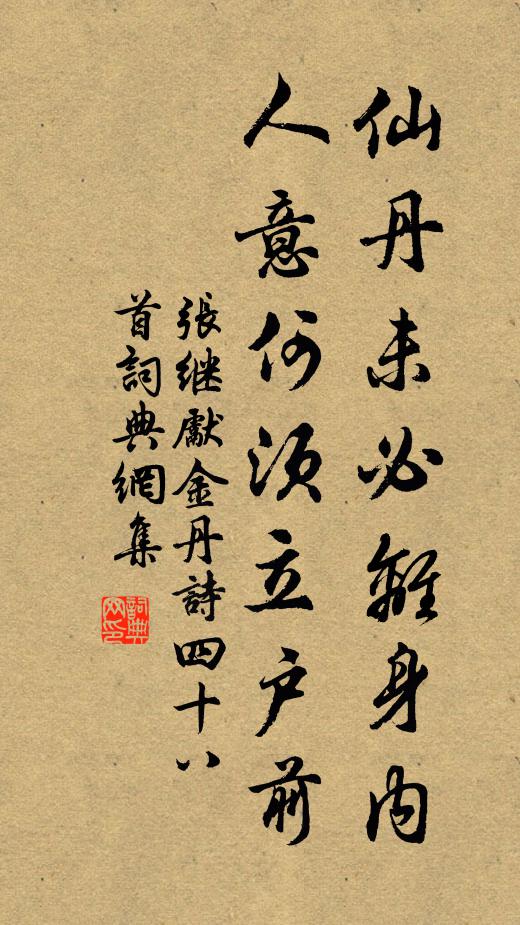 仙丹未必離身內
人意何須立户前
張继獻金丹詩四十八
首詞典網集
詞典
网印